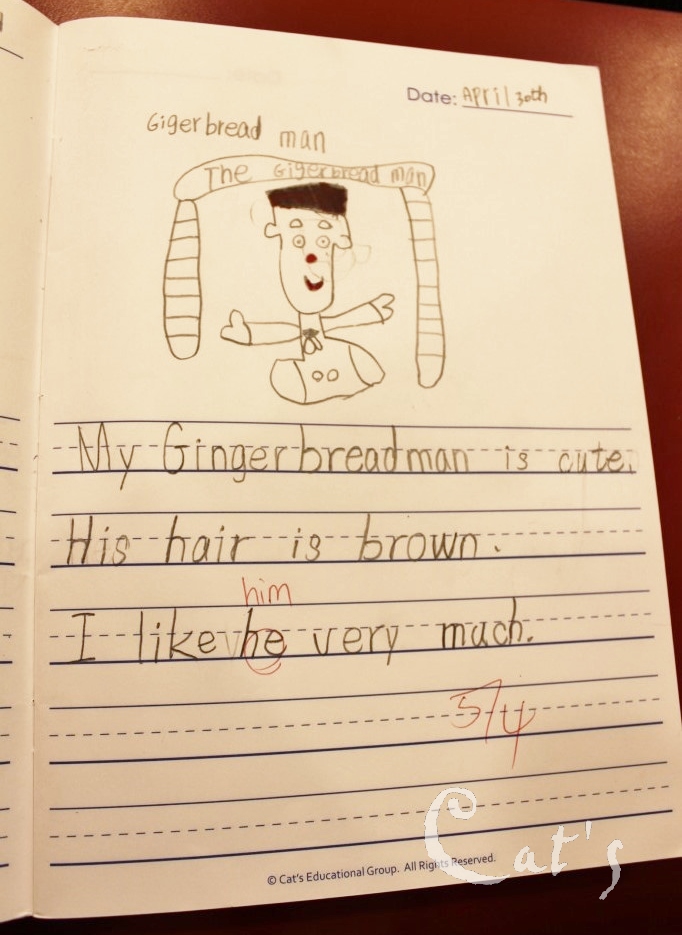 Date: April 30th
Gigerbread man
The Gigerbread man
My Gingerbreadman is cute.
His hair is brown.
him
I like he very much.
5/4
© Cat's Educational Group. All Rights Reserved.
Cat's